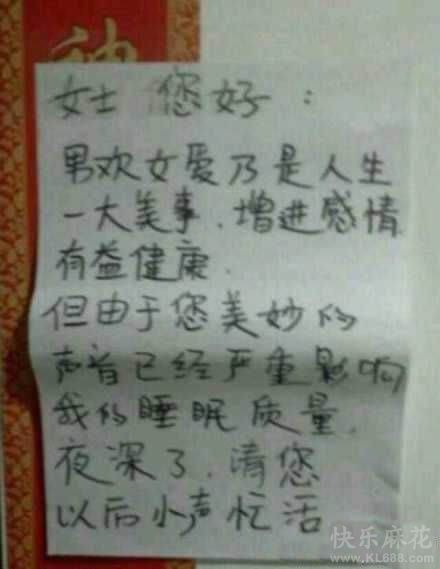 神
女士 您好：
男欢女爱乃是人生
一大美事，增进感情
有益健康.
但由于您美妙的
声音已经严重影响
我的睡眠质量.
夜深了，请您
以后小声忙活
快乐麻花
www.KL688.com